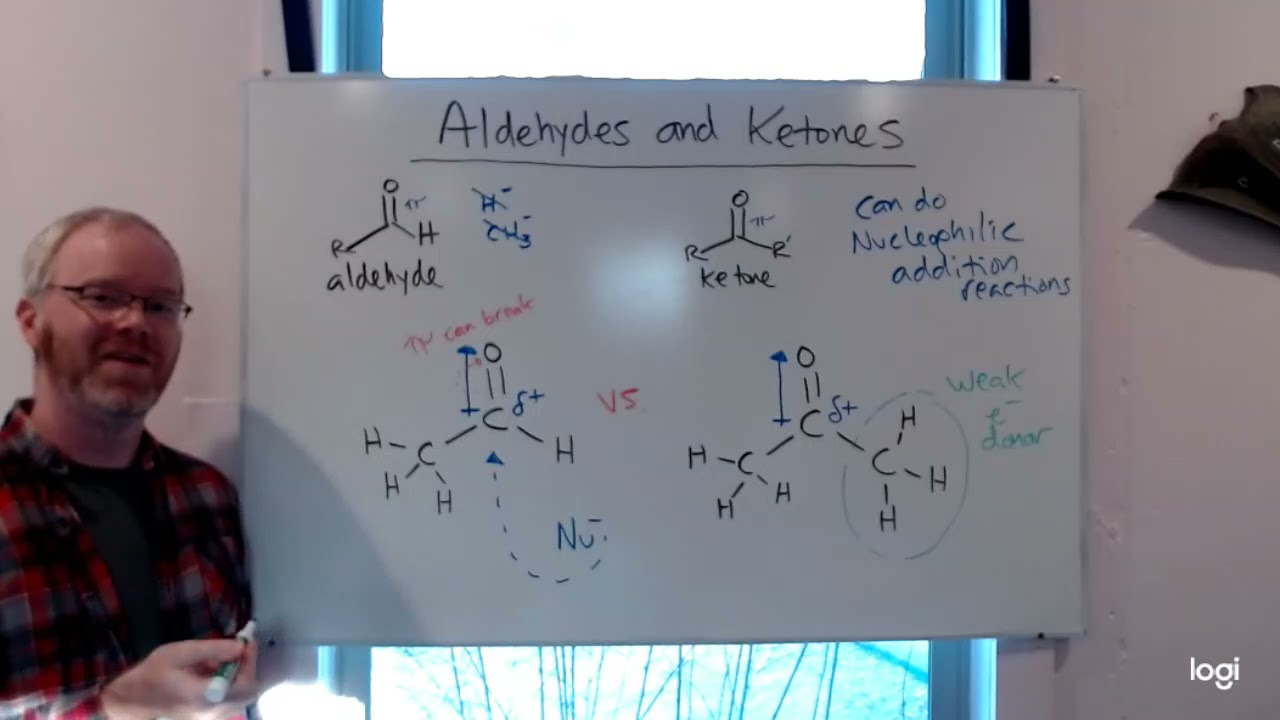 Aldehydes and Ketones
O
π
R
H
aldehyde
H⁻
CH₃⁻
O
π
R
R'
ketone
Can do
Nucleophilic
addition
reactions
π can break
O
C δ+
H C H
H H
Nu:⁻
VS.
O
C δ+
H C
H H
H
C H
H
weak
e⁻
donor
logi